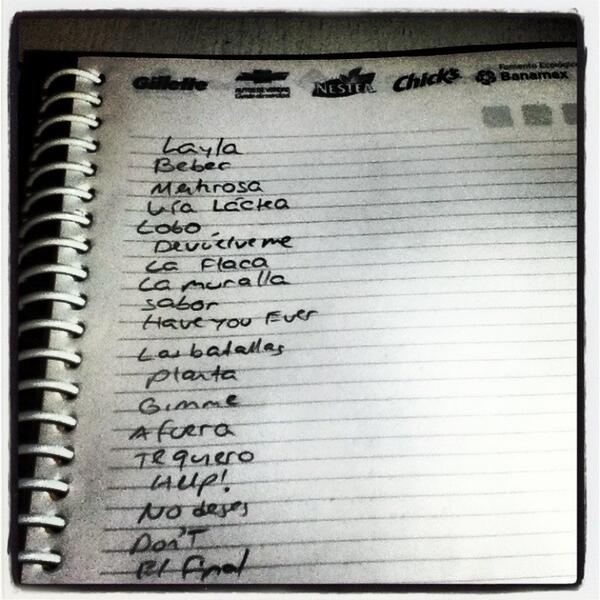 Gillette NESTEA Chicks Fomento Ecológico Banamex
Layla
Beber
Mentirosa
Vía Láctea
Lobo
Devuélveme
La Flaca
La muralla
Sabor
Have you Ever
Las batallas
Planta
Gimme
Afuera
Te quero
HELP!
No dejes
Don't
El final